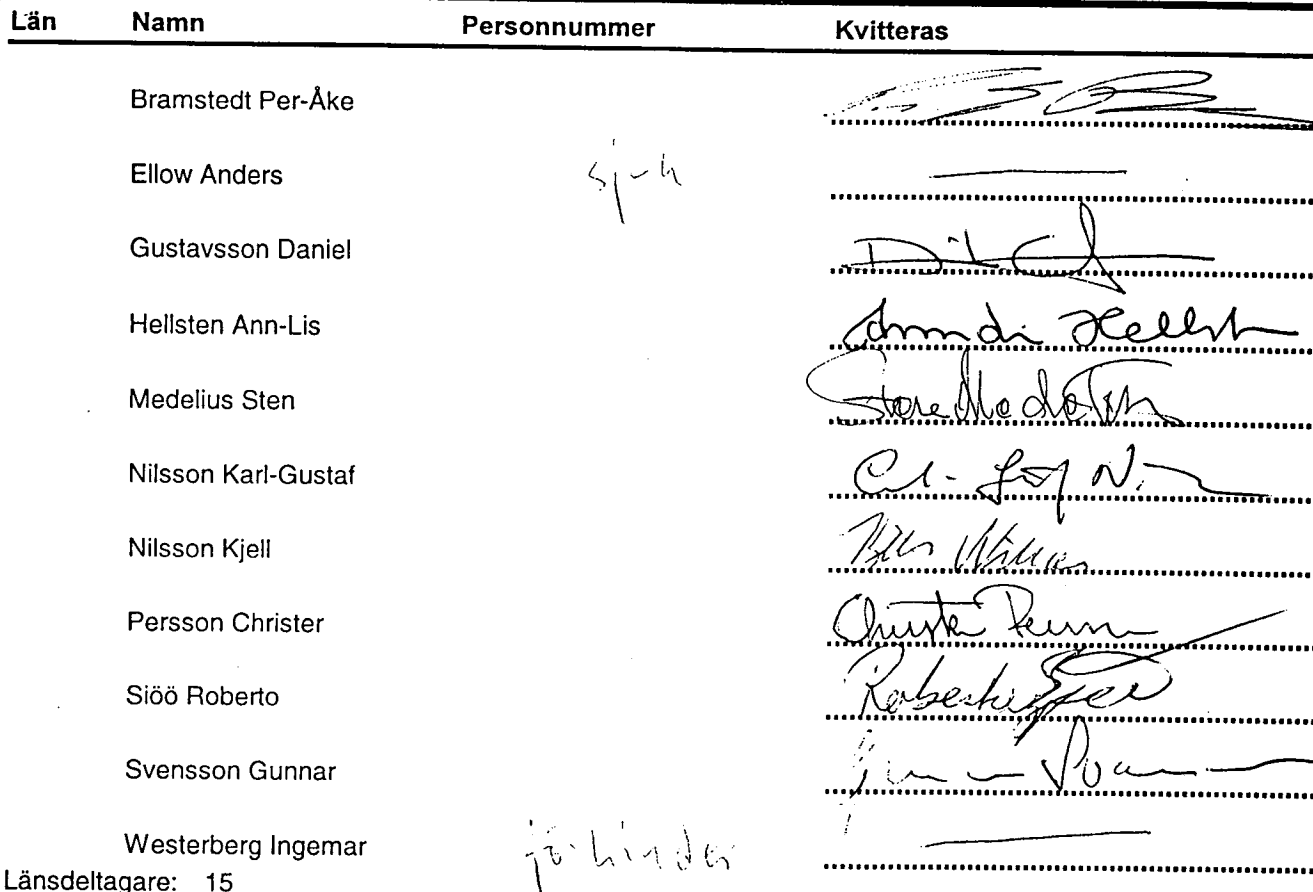 Län Namn Personnummer Kvitteras
Bramstedt Per-Åke
Ellow Anders sjuk
Gustavsson Daniel
Hellsten Ann-Lis
Medelius Sten
Nilsson Karl-Gustaf
Nilsson Kjell
Persson Christer Christer Persson
Siöö Roberto
Svensson Gunnar
Westerberg Ingemar förhinder
Länsdeltagare: 15